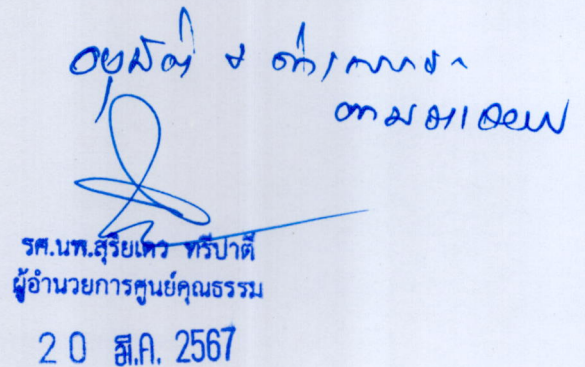 อนุมัติ & ดำเนินการ
ตามเสนอ
รศ.นพ.สุริยเดว ทรีปาตี
ผู้อำนวยการศูนย์คุณธรรม
20 มี.ค. 2567